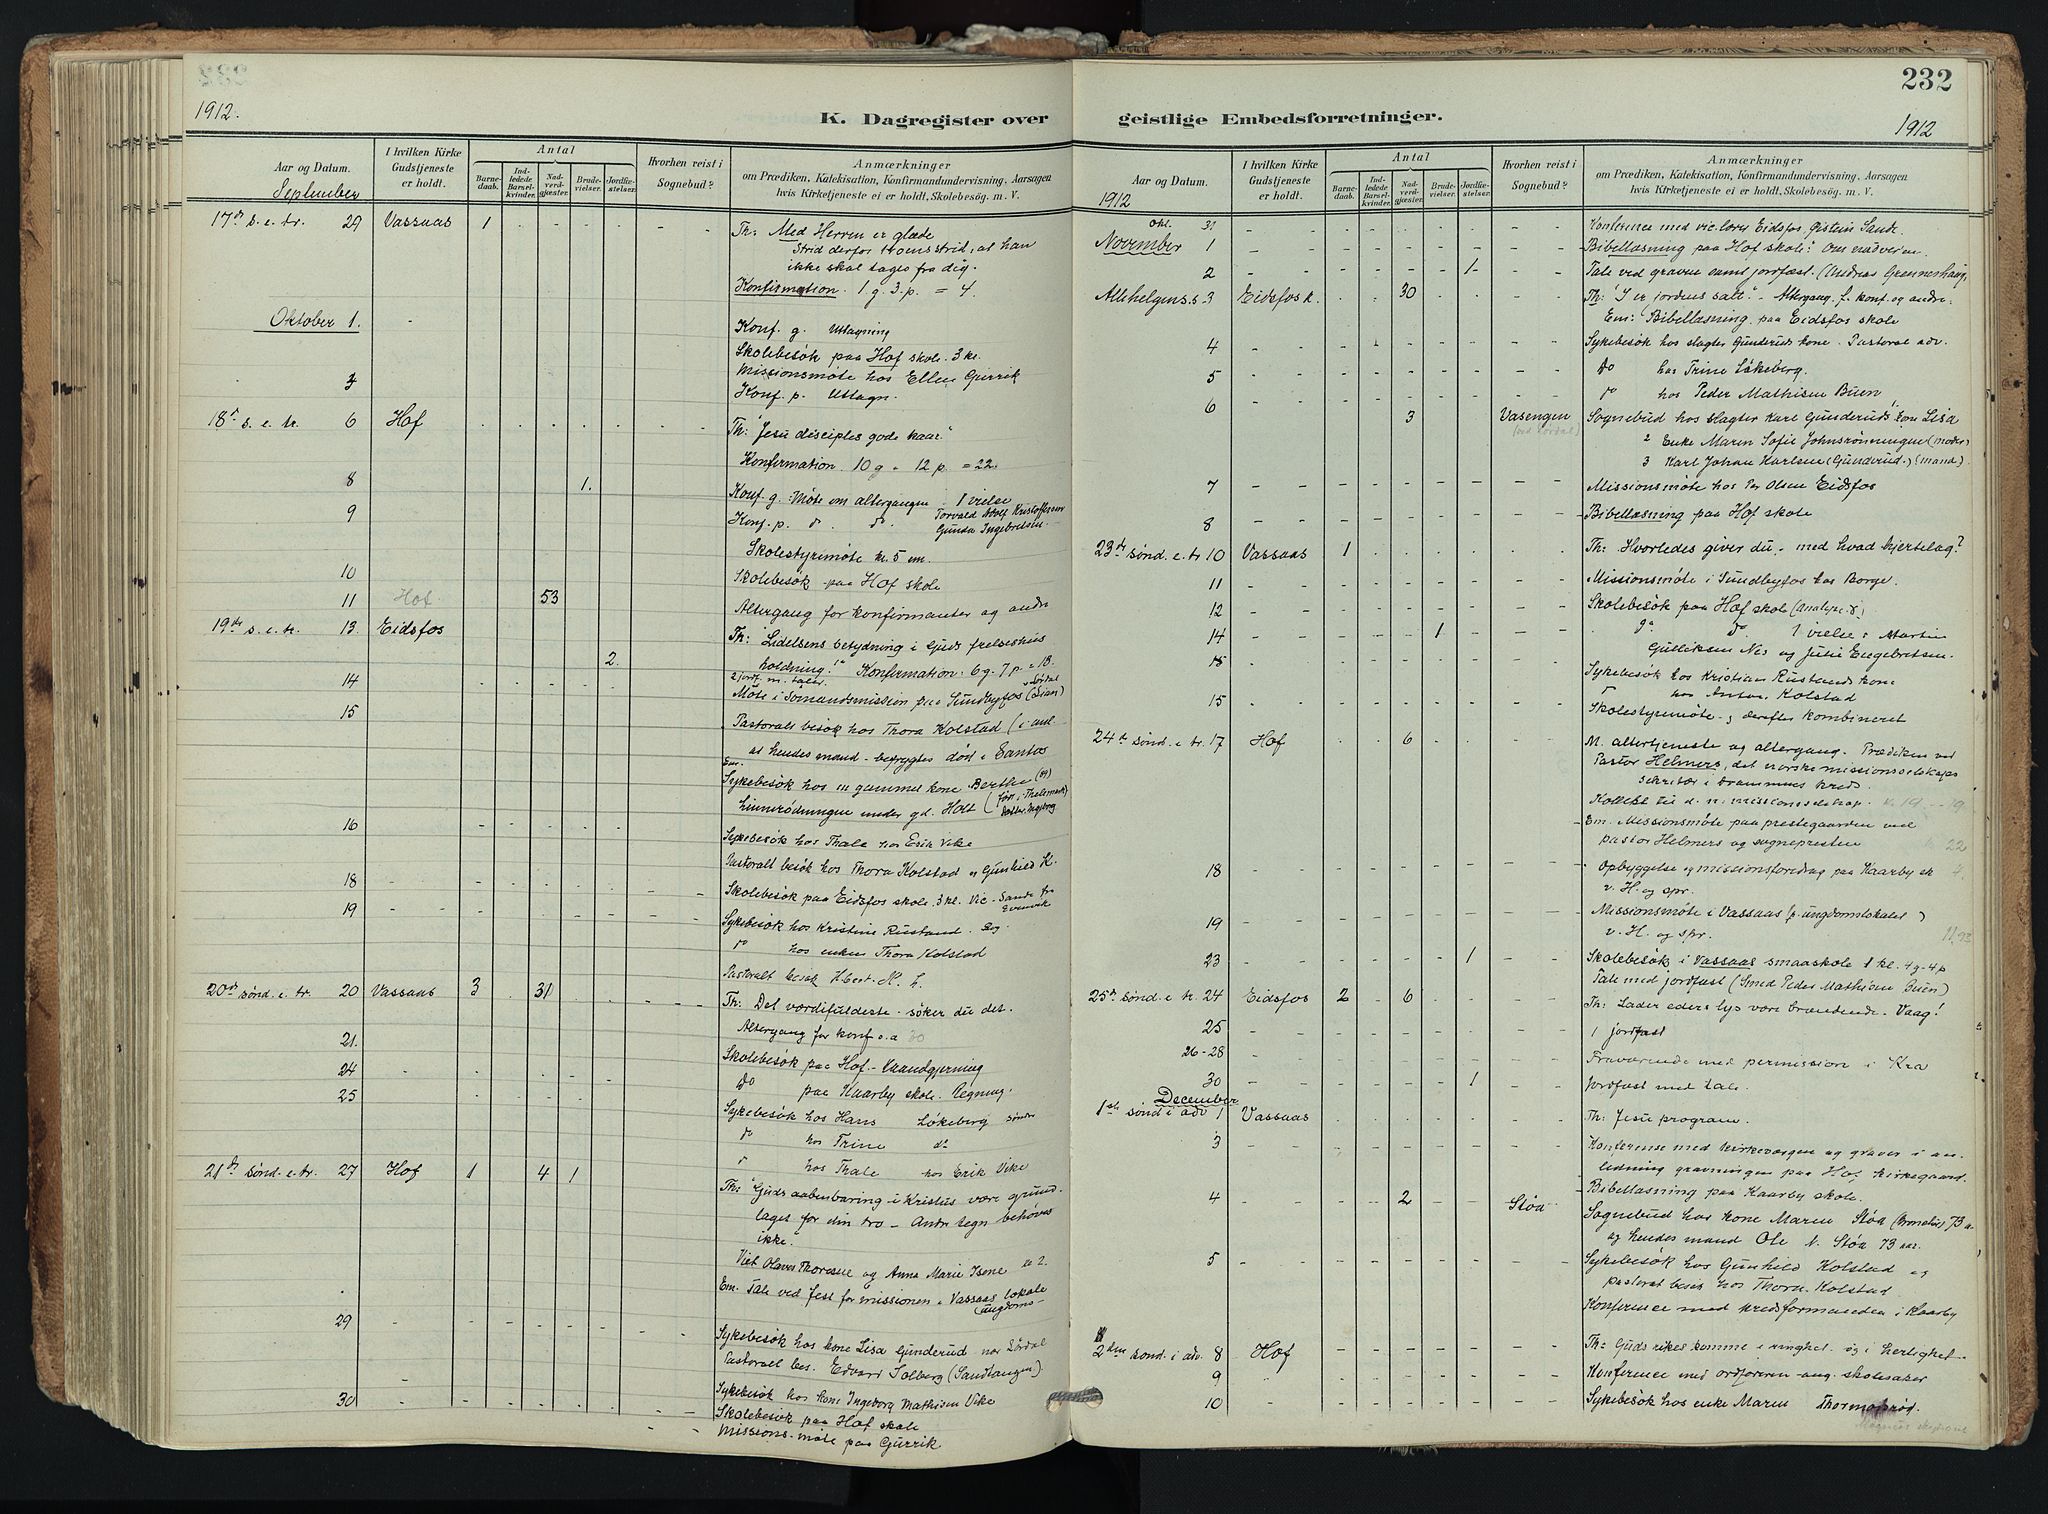 232
1912.
K. Dagregister over
Aar og Datum.
I hvilken Kirke Gudstjeneste er holdt.
Antal
Barnedaab.
Indledede Barselkvinder.
Nadverdgjester.
Brudevielser.
Jordfæstelser.
Hvorhen reist i Sognebud?
Anmærkninger
om Prædiken, Katekisation, Konfirmandundervisning, Aarsagen
hvis Kirketjeneste ei er holdt, Skolebesøg. m. V.
September
17de s. e. tr. 29 Vassaas 1 Th: Med Herren er glæde
Strid derfor troens strid, at han
ikke skal tages fra dig.
Konfirmation. 1 g. 3. p. = 4.
Oktober 1. Konf. g. Utlagning
Skolebesøk paa Hof skole. 3 kl.
Missionsmøte hos Ellen Gurrik
3 Konf. p. Utlagn.
18de s. e. tr. 6 Hof Th: "Jesu disciples gode kaar."
Konfirmation. 10 g - 12 p. = 22.
8 1. Konf. g. Møte om altergangen - 1 vielse
Torvald Adolf Kristoffersen
9 Konf. p. do. do. Gunda Ingebretsen
Skolestyremøte kl. 5 em.
10 Skolebesøk paa Hof skole
11 Hof 53 Altergang for konfirmanter og andre
19de s. e. tr. 13. Eidsfos Th: "Lidelsens betydning i Guds frelseshus
holdning." Konfirmation. 6 g. 7 p. = 13.
2. 2 jordf. m. taler.
14 Møte i Sømandsmission paa Sundbyfos
15 Pastoralt besøk hos Thora Kolstad (i anl.
at hendes mand - befrygtes død i Santos
Em. Sykebesøk hos en gammel kone Berthe (89)
under gd. Holt (født i Thelemark)
16 Sykebesøk hos Thale hos Erik Vike
Pastoralt besøk hos Thora Kolstad og Gunhild K.
18 Skolebesøk paa Eidsfos skole. 3 kl. Vic. Sande fra
19 Sykebesøk hos Kristine Rustand. Sog.
do hos enken Thora Kolstad
Pastoralt besøk
20de sønd. e. tr. 20 Vassaas 3 31 Th: Det værdifuldeste - søker du det.
Altergang for konf o. a 30
21. Skolebesøk paa Hof. - Haandgjerning
24 do paa Kaarby skole. Regning.
25 Sykebesøk hos Hans Løkeberg søndre
do hos Trine do
do hos Thale hos Erik Vike
21de sønd. e. tr. 27 Hof 1 4 1 Th: "Guds aabenbaring i Kristus være grund-
laget for din tro - Andre tegn behøves
ikke."
Viet Olaves Thoresen og Anna Marie Isene
Em. Tale ved fest for missionen i Vassaas lokale
ungdoms-
29 Sykebesøk hos kone Lisa Gunderud nor Lørdal
Pastoralt bes. Edvard Solberg (Sandtangen)
30 Sykebesøk hos kone Ingeborg Mathisen Vike
Skolebesøk paa Hof skole
Missions-møte paa Gurrik
232
1912
geistlige Embedsforretninger.
Aar og Datum.
I hvilken Kirke Gudstjeneste er holdt.
Antal
Barnedaab.
Indledede Barselkvinder.
Nadverdgjester.
Brudevielser.
Jordfæstelser.
Hvorhen reist i Sognebud?
Anmærkninger
om Prædiken, Katekisation, Konfirmandundervisning, Aarsagen
hvis Kirketjeneste ei er holdt, Skolebesøg. m. V.
1912
Okt. 31 Konference med vic. lærer Eidsfos Sande.
November 1 Bibellæsning paa Hof skole: Om nadveren.
2 1 Tale ved graven samt jordfæst. (Andreas Grenneshaug)
Allehelgens.s 3 Eidsfos k. 30 Th: "I er jordens salt." - Altergang f. konf. og andre.
Em: Bibellæsning paa Eidsfos skole
4 Sykebesøk hos slagter Gunderuds kone. Pastoral adv.
5 do hos Trine Løkeberg.
do hos Peder Mathisen Buen
6 3 Vasengen (ved Lørdal) Sognebud hos slagter Karl Gunderuds kone Lisa
2 Enke Maren Sofie Johnsrønningen (moder)
3 Karl Johan Karlsen (Gunderud.) (mand)
7 Missionsmøte hos Per Olsen Eidsfos
8 Bibellæsning paa Hof skole
23de sønd. e. tr 10 Vassaas 1 Th: Hvorledes giver du, - med hvad hjertelag?
11 Missionsmøte i Sundbyfos hos Borge.
12 Skolebesøk paa Hof skole
14 1 do 1 vielse: Martin
Gulliksen Nes og Julie Engebretsen.
15 Sykebesøk hos Kristian Rustands kone
hos Anton Kolstad
15 Skolestyremøte - derefter kombineret
24de sønd. e. tr. 17 Hof 6 M. altertjeneste og altergang. Prædiken ved
Pastor Helmers, det norske missionsselskaps
sekretær i Drammens kreds.
Kollekt til d. n. missionsselskap. kr. 19 - 19
Em. Missionsmøte paa prestegaarden ved
pastor Helmers og sognepresten 22
18 Opbyggelse og missionsforedrag paa Kaarby sk 4.
v. H. og spr.
19 Missionsmøte i Vassaas (p. ungdomslokalet)
v. H. og spr. 11.93
23 1 Skolebesøk i Vassaas smaaskole 1 kl. 4 g - 4 p
Tale med jordfæst (Smed Peder Mathisen Buen)
25de sønd e tr. 24 Eidsfos 2 6 Th: Lader eders lys være brændende. Vaag!
25 1 jordfæst
26-28 Fraværende med permission i Kra
30 1 Jordfæst med tale.
December
1ste sønd i adv 1 Vassaas Th: Jesu program.
3 Konferense med kirkevergen og graver i an-
ledning gravningen paa Hof kirkegaard.
Bibellæsning paa Kaarby skole.
4 2 Støa Sognebud hos kone Maren Støa 73 a.
og hendes mand Ole N. Støa 73 aar.
5 Sykebesøk hos Gunhild Kolstad og
pastoral besøk hos Thora Kolstad
Konference med kredsformanden i Kaarby
2den sønd. i adv. 8 Hof Th: Guds rikes komme i ringhet og i herlighet
9 Konference med ordføreren ang. skolesaker
10 Sykebesøk hos enke Maren Thormodsrød.